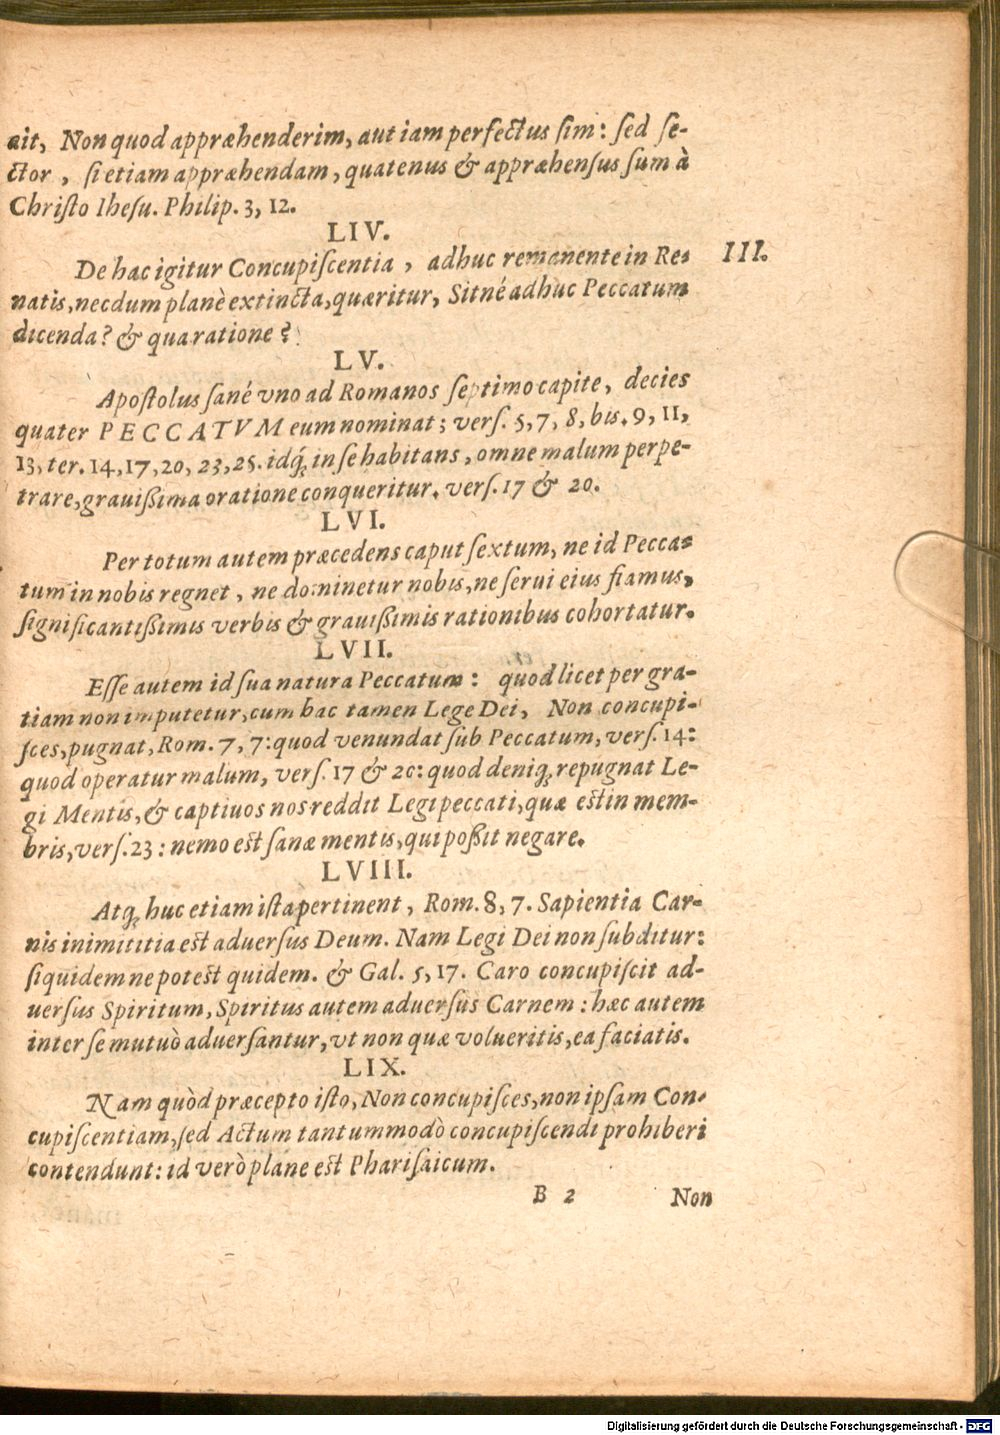 ait, Non quod appræhenderim, aut iam perfectus ſim: ſed ſe-
ctor, ſi etiam appræhendam, quatenus & appræhenſus ſum à
Chriſto Iheſu. Philip. 3, 12.
LIV.
De hac igitur Concupiſcentia, adhuc remanente in Re-
natis, necdum planè extincta, quæritur, Sitné adhuc Peccatum
dicenda? & qua ratione?
III.
LV.
Apoſtolus ſané vno ad Romanos ſeptimo capite, decies
quater PECCATVM eum nominat; verſ. 5, 7, 8, bis. 9, 11,
13, ter. 14, 17, 20, 23, 25. idq́; in ſe habitans, omne malum perpe-
trare, grauißima oratione conqueritur. verſ. 17 & 20.
LVI.
Per totum autem præcedens caput ſextum, ne id Pecca-
tum in nobis regnet, ne dominetur nobis, ne ſerui eius fiamus,
ſignificantißimis verbis & grauißimis rationibus cohortatur.
LVII.
Eſſe autem id ſua natura Peccatum: quod licet per gra-
tiam non imputetur, cum hac tamen Lege Dei, Non concupi-
ſces, pugnat, Rom. 7, 7: quod venundat ſub Peccatum, verſ. 14:
quod operatur malum, verſ. 17 & 20: quod deniq; repugnat Le-
gi Mentis, & captiuos nos reddit Legi peccati, quæ est in mem-
bris, verſ. 23: nemo est ſanæ mentis, qui poßit negare.
LVIII.
Atq; huc etiam iſta pertinent, Rom. 8, 7. Sapientia Car-
nis inimititia est aduerſus Deum. Nam Legi Dei non ſubditur:
ſiquidem ne potest quidem. & Gal. 5, 17. Caro concupiſcit ad-
uerſus Spiritum, Spiritus autem aduerſus Carnem: hæc autem
inter ſe mutuò aduerſantur, vt non quæ volueritis, ea faciatis.
LIX.
Nam quòd præcepto iſto, Non concupiſces, non ipſam Con-
cupiſcentiam, ſed Actum tantummodò concupiſcendi prohiberi
contendunt: id verò plane est Phariſaicum.
B 2 Non
Digitalisierung gefördert durch die Deutsche Forschungsgemeinschaft - DFG